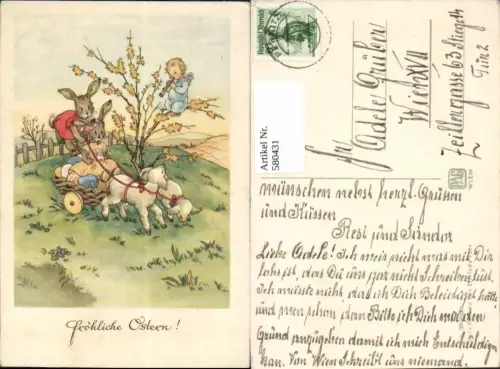 fröhliche Ostern!
Artikel Nr.
580431
Fr
Adele Grüber
Wien XIV
Zeillergasse 63 Stiege 14
Tür 2
PAG
WIEN
wünschen nebst herzl. Grüssen
und Küssen
Resi und Sandor
Liebe Adele! Ich weis nicht was mit Dir
los ist, das Du uns gar nicht Schreiben tust.
Ich wüsste nicht, das ich Dich Beleidigt hätte
und wen schon dan Bitte ich Dich mir den
Grund anzugeben damit ich mich Entschuldigen
kan. Von Wien Schreibt uns niemand.